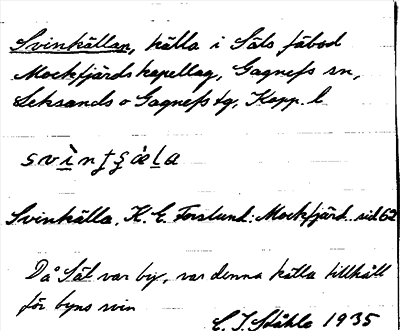 Svinkällan, källa i Säls fäbod
Mockfjärds kapellag, Gagnefs sn,
Leksands o Gagnefs tg, Kopp. l
svìntʂäla
Svinkälla. K. E. Forslund: Mockfjärd sid 62
Då Säl var by, var denna källa tillhåll
för byns svin
E. J. Ståhle 1935